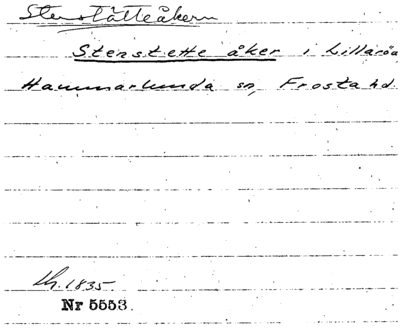 Stenstätteåkern
Stenstette åker i Lillaröa
Hammarlunda sn, Frosta hd.
Lh. 1835
Nr 5553.